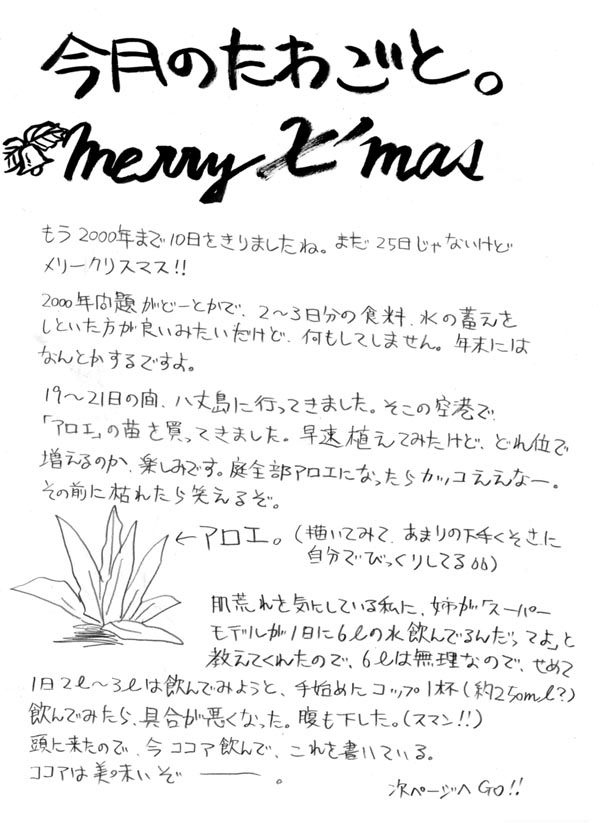 今月のたわごと。
merry X'mas
もう2000年まで10日をきりましたね。まだ25日じゃないけど
メリークリスマス!!
2000年問題がどーとかで、2〜3日分の食料、水の蓄えを
しといた方が良いみたいだけど、何もしてしません。年末には
なんとかするですよ。
19〜21日の間、八丈島に行ってきました。そこの空港で、
「アロエ」の苗を買ってきました。早速植えてみたけど、どれ位で
増えるのか、楽しみです。庭全部アロエになったらカッコええなー。
その前に枯れたら笑えるぞ。
←アロエ。(描いてみて、あまりの下手くそさに
自分でびっくりしてる
肌荒れを気にしている私に、姉が「スーパー
モデルが1日に6ℓの水飲んでるんだってよ」と
教えてくれたので、6ℓは無理なので、せめて
1日2ℓ〜3ℓは飲んでみようと、手始めにコップ1杯(約250mℓ?)
飲んでみたら、具合が悪くなった。腹も下した。(スマン!!)
頭に来たので、今ココア飲んで、これを書いている。
ココアは美味いぞ ―― 。
次ページへGO!!